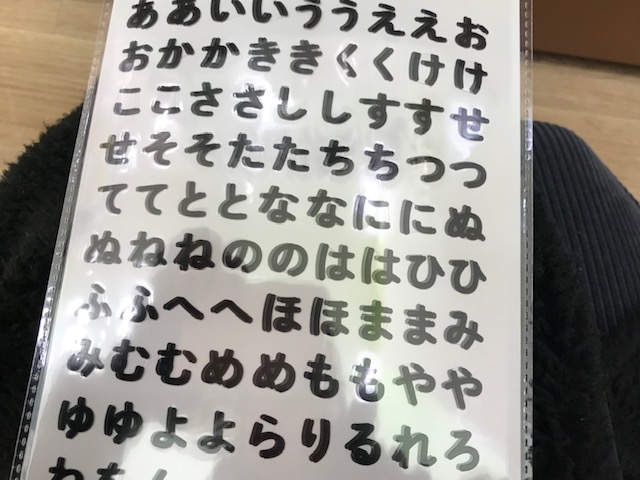 ああいいううええお
おかかききくくけけ
ここささししすすせ
せそそたたちちつつ
ててととななににぬ
ぬねねののははひひ
ふふへへほほままみ
みむむめめももやや
ゆゆよよらりるれろ
わをん